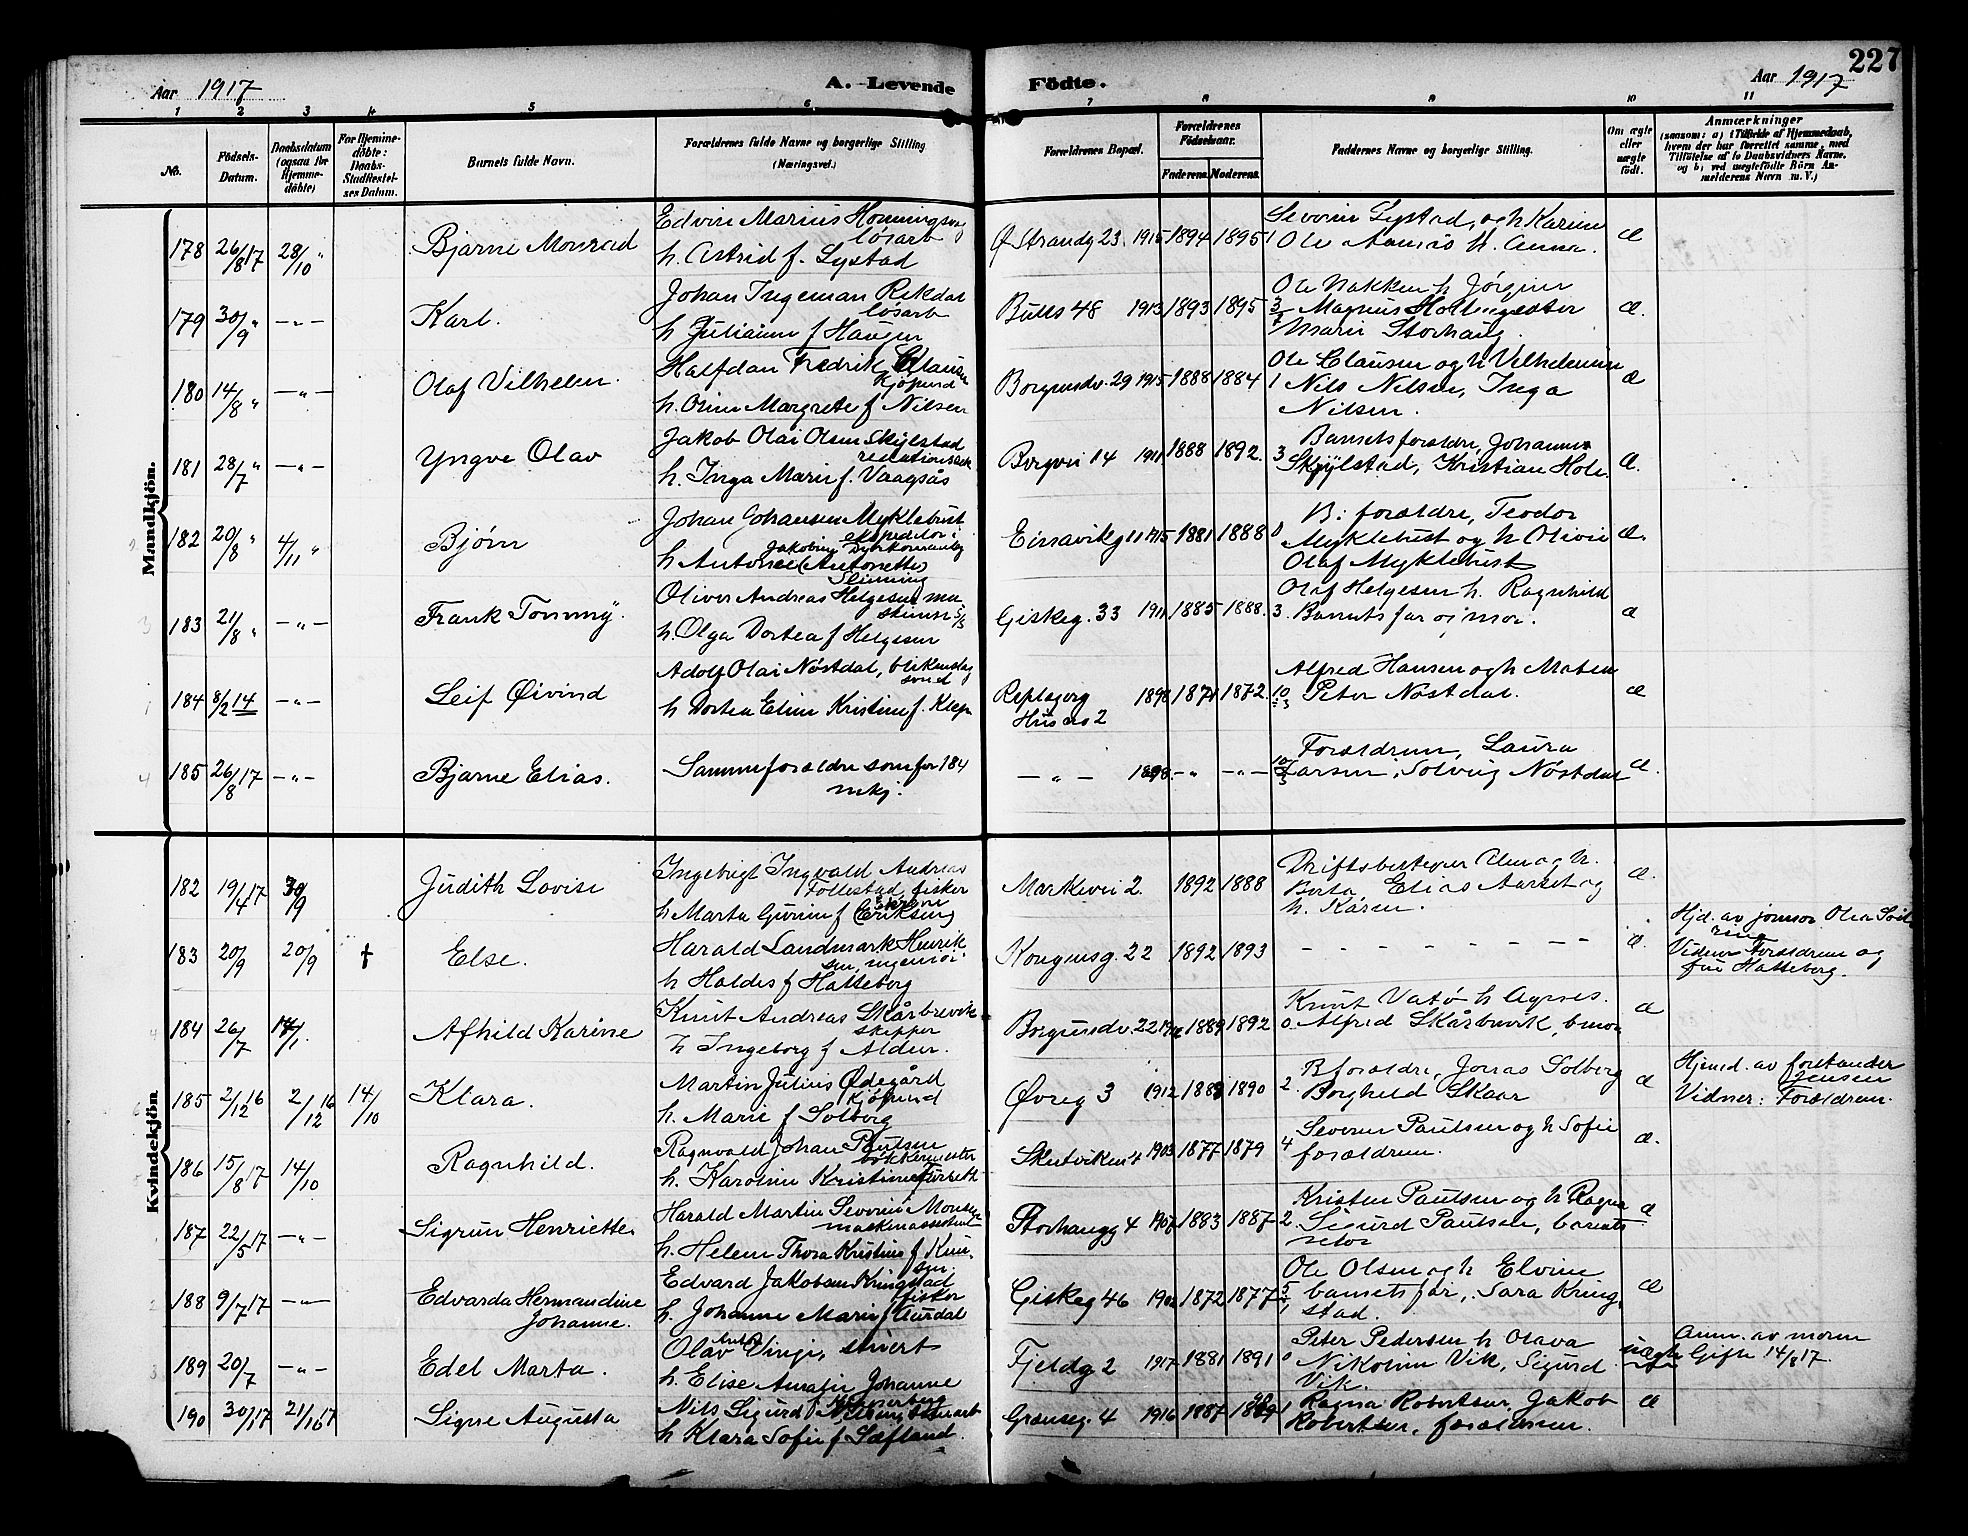 227
Aar 1917
A. Levende Födte.
Aar 1917
1 2 3 4 5 6 7 8 9 10 11
No.
Födsels-Datum.
Daabsdatum (ogsaa for Hjemme-döbte)
For Hjemme-döbte: Daabs-Stadfestel-ses Datum.
Barnets fulde Navn.
Forældrenes fulde Navne og borgerlige Stilling
(Næringsvei.)
Forældrenes Bopæl.
Forældrenes Födselsaar.
Faderens. Moderens.
Faddernes Navne og borgerlige Stilling.
Om ægte eller uægte födt.
Anmærkninger
(saasom: a) i Tilfælde af Hjemmedaab, hvem der har forrettet samme, med Tilföielse af to Daabsvidners Navne, og b) ved uægtefödte Börn An-melderens Navn m. V.)
Mandkjön.
178 26/8 17 28/10 " Bjarne Monrad
Edvin Marius Honningsvåg
løsarb
h. Astrid f. Lystad
Ø Strandg 23. 1915 1894 1895 1
Severin Lystad, og h Karine
Ole Aamås h. Anna.
Æ
179 30/9 " — " — Karl.
Johan Ingeman Rekdal
løsarb
h Julianne f Haugen
Bulls 48 1913 1893 1895
Ole Nakken h Jørgine
Magnus
Marie Storhaug
æ.
180 14/8 " — " — Olaf Vilhelm.
Halfdan Fredrik Clausen
kjøpmd
h. Oline Margrete f Nilsen
Borgundv. 29 1915 1888 1884 1
Ole Clausen og h Vilhelmine
Nils Nilsen, Inga
Nilsen.
æ
181 28/7 " — " — Yngve Olav
Jakob Olai Olsen Skylstad
h. Inga Marie f. Vaagsås
Borgvei 14 1911 1888 1892. 3
Barnets forældre, Johannes
Skjylstad, Kristian Hole
Æ.
182 20/8 " 4/11 " Bjørn
Johan Johansen Myklebust
ekspeditør i
h Antonie (Antonette)
Slinning
1915 1881 1888 0
B: forældre, Teodor
Myklebust og h Olivie
Olaf Myklebust
Æ.
183 21/8 " — " — Frank Tommy
Oliver Andreas Helgesen ma
h. Olga Dortea f Helgesen
Giskeg. 33 1911 1885 1888. 3.
Olaf Helgesen h. Ragnhild
Barnets far og mor.
æ
184 8/2 14 — " — Leif Øivind
Adolf Olai Nøstdal, blikenslag
svend
h Dortea Eline Kristine f. Kleppe
Repslagerg
1898 1871 1872. 10/3
Alfred Hansen og h Maten
Peter Nøstdal.
æ
185 26/8 17 — " — Bjarne Elias.
Samme forældre som for 184
mkj.
— " — 1898 — " — " — 10/3
Forældrene, Laura
Larsen, Solveig Nøstdal
æ.
Kvindekjön
182 19/4 17 30/9 Judith Lovise
Ingebrigt Ingvald Andreas
Follestad, fisker
h Marta Gurine f (Eriksen)
Markevei 2. 1892 1888
Driftsbestyrer og h.
Berta, Elias Aarset og
h. Karen.
æ.
183 20/9 20/9 † Else.
Harald Landmark Henrik
sen, ingeniør
h Haldis f Hatteborg
Kongensg. 22 1892 1893
— — — — — — — —
æ.
Hjd. av jormor Olea
Vidner Forældrene og
fru Hatteborg.
184 26/7 14/1. Afhild Karine
Knut Andreas Skårbrevik
skipper
h Ingeborg f Alden.
Borgundv. 22 1889 1892 0
Knut Vatø h Agnes.
Alfred Skårbrevik,
æ
185 2/12 16 2/12 16 14/10 Klara.
Martin Julius Ødegård
kjøpmd
h. Marie f Solberg
Øvreg 3 1912 1888 1890 2.
B forældre, Jonas Solberg
Borghild Skaar
æ
Hjemd. av forstander
Jensen
Vidner: Forældrene.
186 15/8 17 14/10 Ragnhild.
Ragnvald Johan Paulsen
bøkkermester
h. Karoline Kristine
Skutviken 1903 1877 1879 4
Severin Paulsen og h Sofie
forældrene.
æ.
187 22/5 17 — " — Sigrun Henriette
Harald Martin Severin Monsen
maskinassistent
h. Helene Thora Kristine f Knu-
sen.
Storhaugg 4 1907 1883 1887 2
Kristen Paulsen og h Ragna
Sigurd Paulsen, barnets
æ
188 9/7 17 — " — Edvarda Hermandine
Johanne.
Edvard Jakobsen Kringstad
fisker
h. Johanne Marie f Aurdal
Giskeg 46 1902 1872 1877 5/1
Ole Olsen og h Elvine
barnets far, Sara Kring
stad.
æ
189 20/7 — " — Edel Marta.
Olav Anton Vinje, stuert
h. Elise Amalie Johanne
Fjeldg 2 1917 1881 1891 0
Peter Pedersen h Olava
Nikoline Vik, Sigurd
Vik.
uægte
Anm. av moren
Gifte 14/8 17.
190 30/17 21/1017 Signe Augusta
Nils Sigurd
h Klara Sofie f Sætland.
Grønseg. 4 1916 1887 1
Ragna Robertsen, Jakob
Robertsen, forældrene.
æ